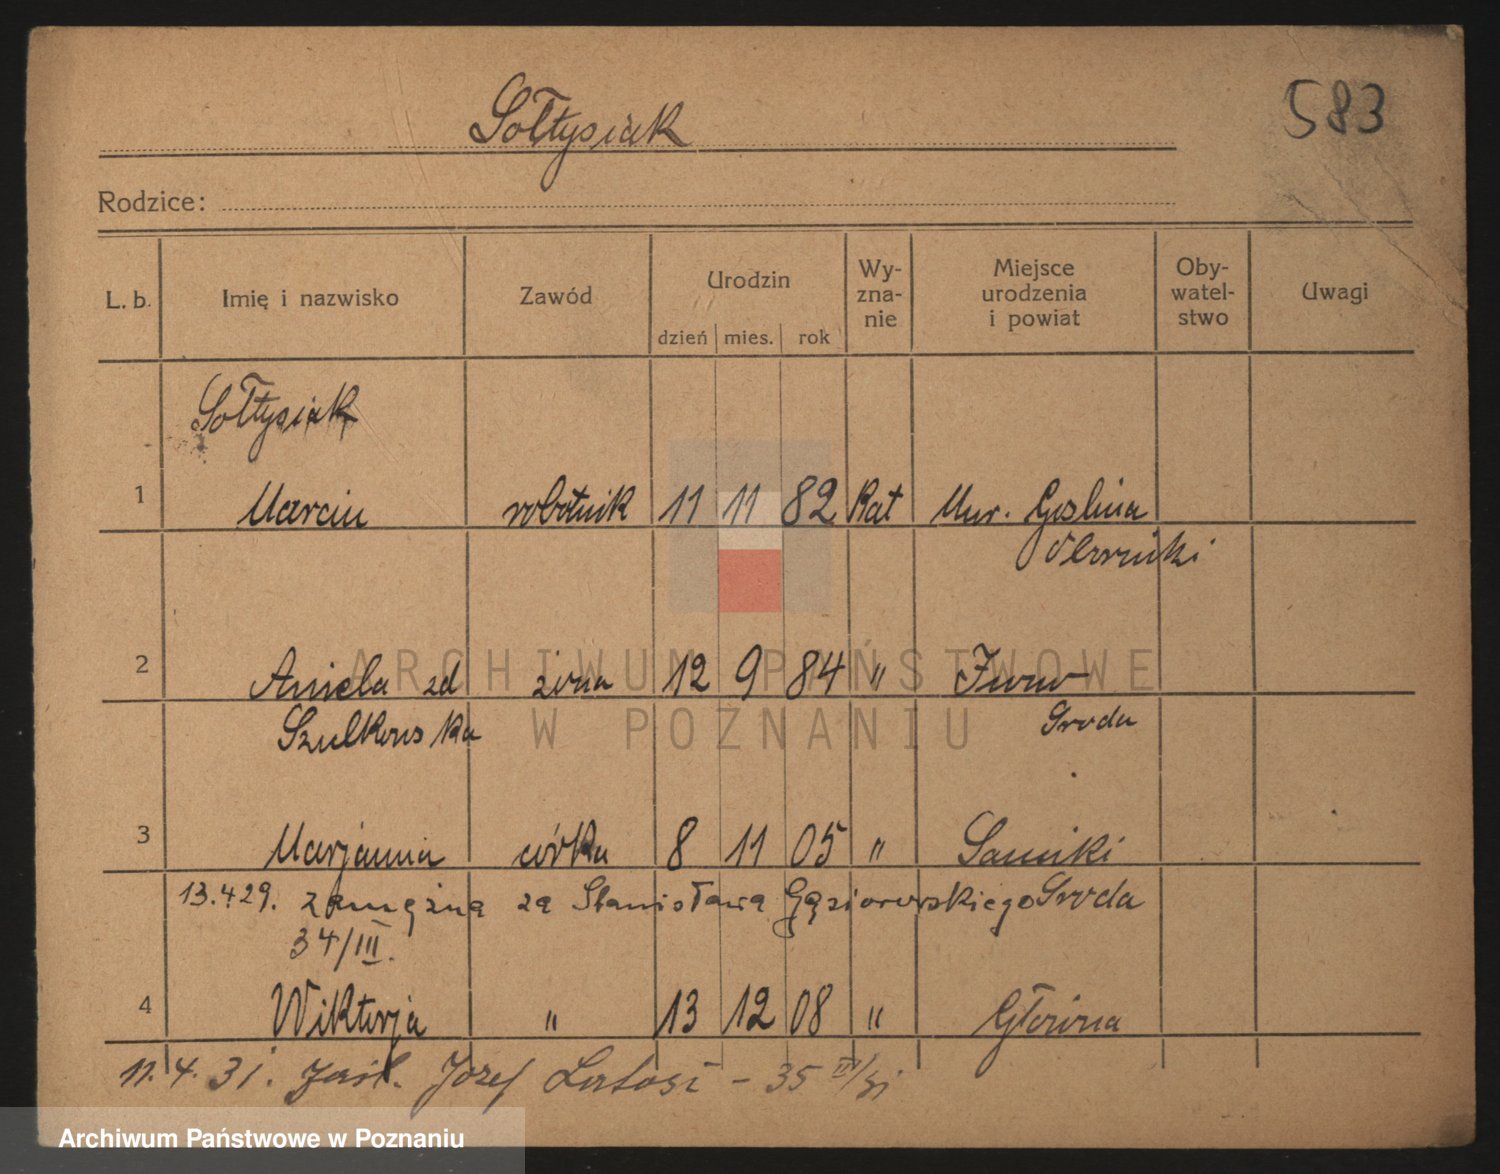 583
Sołtysiak
Rodzice:
L. b. Imię i nazwisko Zawód Urodzin dzień mies. rok Wy-zna-nie Miejsce urodzenia i powiat Oby-watel-stwo Uwagi
Sołtysiak
1 Marcin robotnik 11 11 82 Kat Mur. Goslina
Oborniki
2 Aniela zd żona 12 9 84 "
Szulkowska Sroda
3 Marjanna córka 8 11 05 "
13.4.29. zamężna za Stanisława Gąsiorowskiego Sroda
34/III.
4 Wiktorja " 13 12 08 " Głowna
11.4.31. Józef - 35
ARCHIWUM PAŃSTWOWE
W POZNANIU
Archiwum Państwowe w Poznaniu